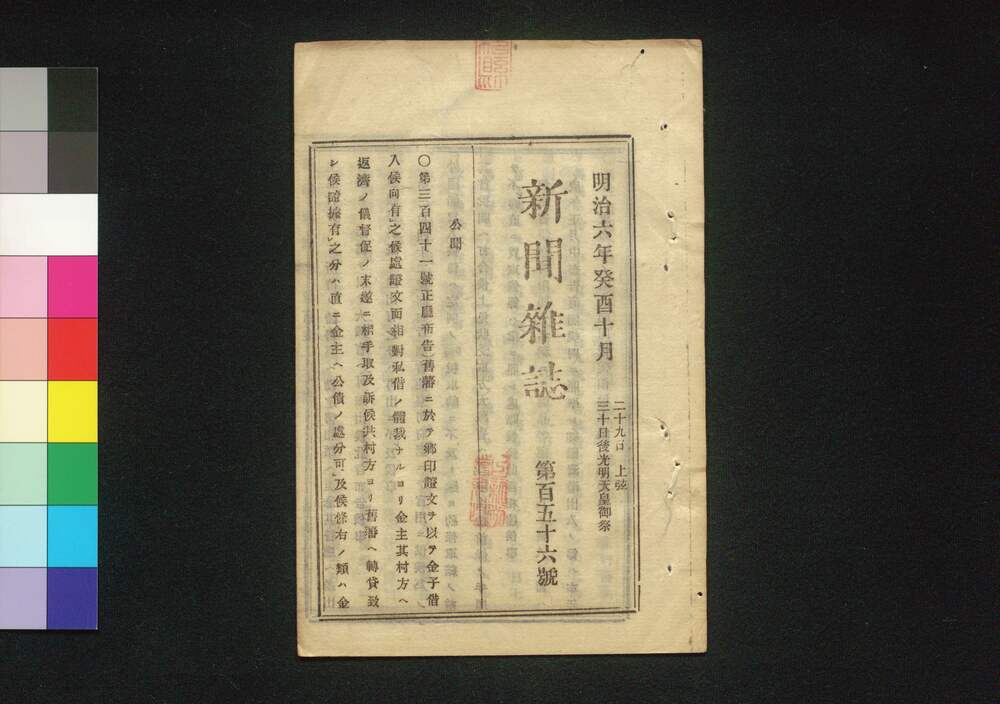 明治六年癸酉十月
二十九日 上弦
三十日後光明天皇御祭
新聞雜誌
第百五十六號
公聞
〇第三百四十一號正廳布告)舊藩ニ於テ鄕印證文ヲ以テ金子借
入候向有之候處證文面相對私借ノ體裁ナルヨリ金主其村方ヘ
返濟ノ儀督促ノ末遂ニ相手取及訴候共村方ヨリ舊藩ヘ轉貸致
シ候證據有之分ハ直ニ金主ヘ公債ノ處分可及候條右ノ類ハ金